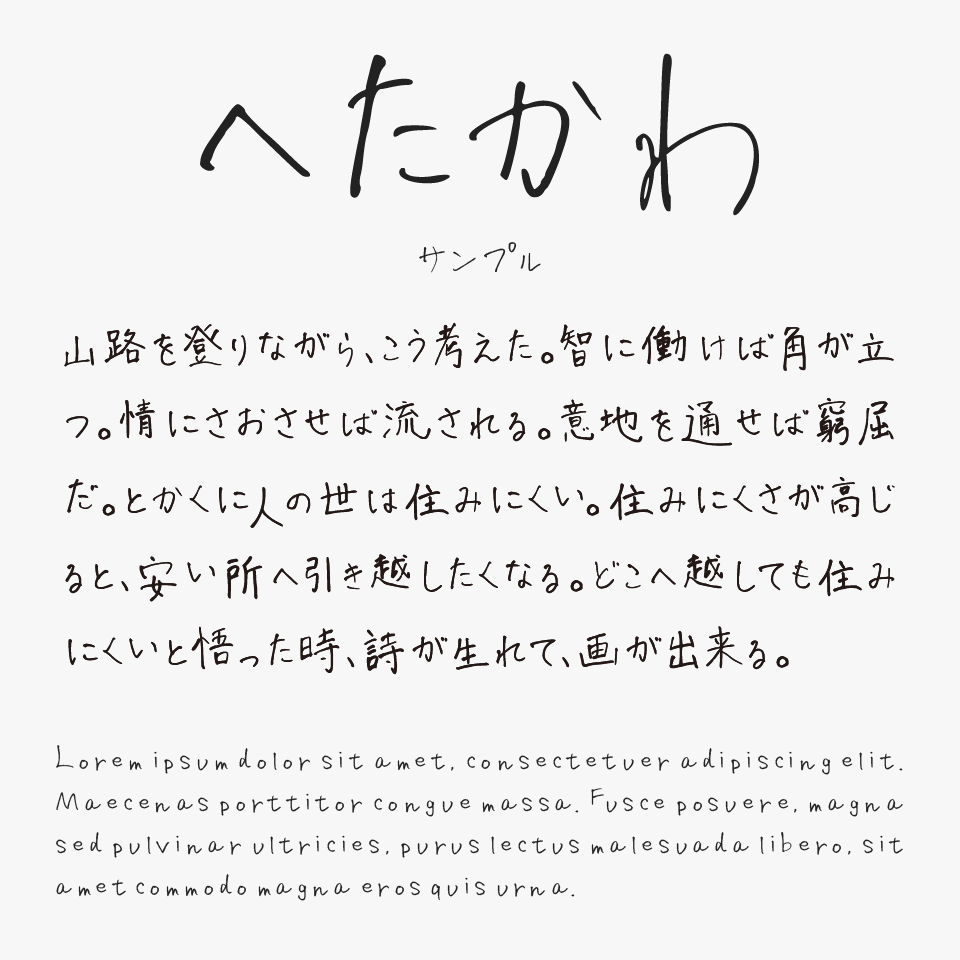 へたかわ
サンプル
山路を登りながら、こう考えた。智に働けば角が立
つ。情にさおさせば流される。意地を通せば窮屈
だ。とかくに人の世は住みにくい。住みにくさが高じ
ると、安い所へ引き越したくなる。どこへ越しても住み
にくいと悟った時、詩が生れて、画が出来る。
Lorem ipsum dolor sit amet, consectetuer adipiscing elit.
Maecenas porttitor congue massa. Fusce posuere, magna
sed pulvinar ultricies, purus lectus malesuada libero, sit
amet commodo magna eros quis urna.